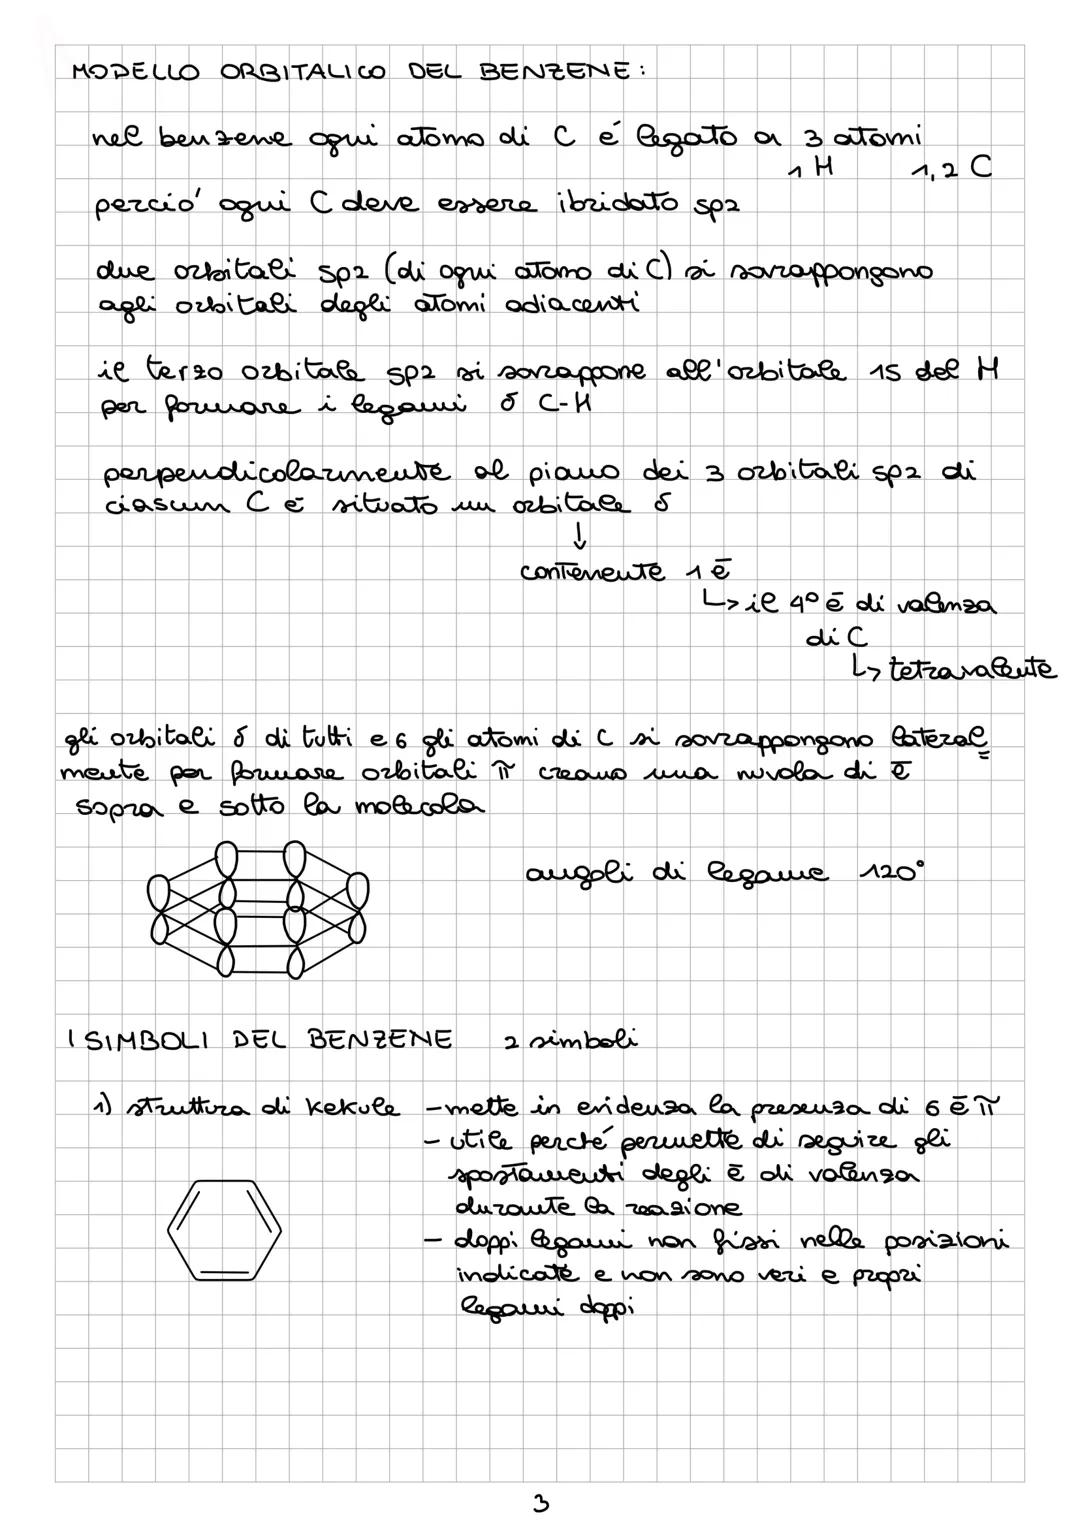 MODELLO ORBITALICO DEL BENZENE:
nel benzene ogni atomo di C é legato a 3 atomi
1 H 1,2 C
perció ogni C deve essere ibridato sp2
due orbitali sp2 (di ogni atomo di C) si sovrappongono
agli orbitali degli atomi adiacenti
il terzo orbitale sp2 si sovrappone all'orbitale 1S del H
per formare i legami δ C-H
perpendicolarmente al piano dei 3 orbitali sp2 di
ciascun C é situato un orbitale δ
↓
contenente 1 ē
↳ il 4° ē di valenza
di C
↳ tetravalente
gli orbitali δ di tutti e 6 gli atomi di C si sovrappongono lateral=
mente per formare orbitali π creano una nuvola di ē
sopra e sotto la molecola
angoli di legame 120°
I SIMBOLI DEL BENZENE 2 simboli
1) struttura di Kekule - mette in evidenza la presenza di 6 ē π
- utile perché permette di seguire gli
spostamenti degli ē di valenza
durante la reazione
- doppi legami non fissi nelle posizioni
indicate e non sono veri e propri
legami doppi
3